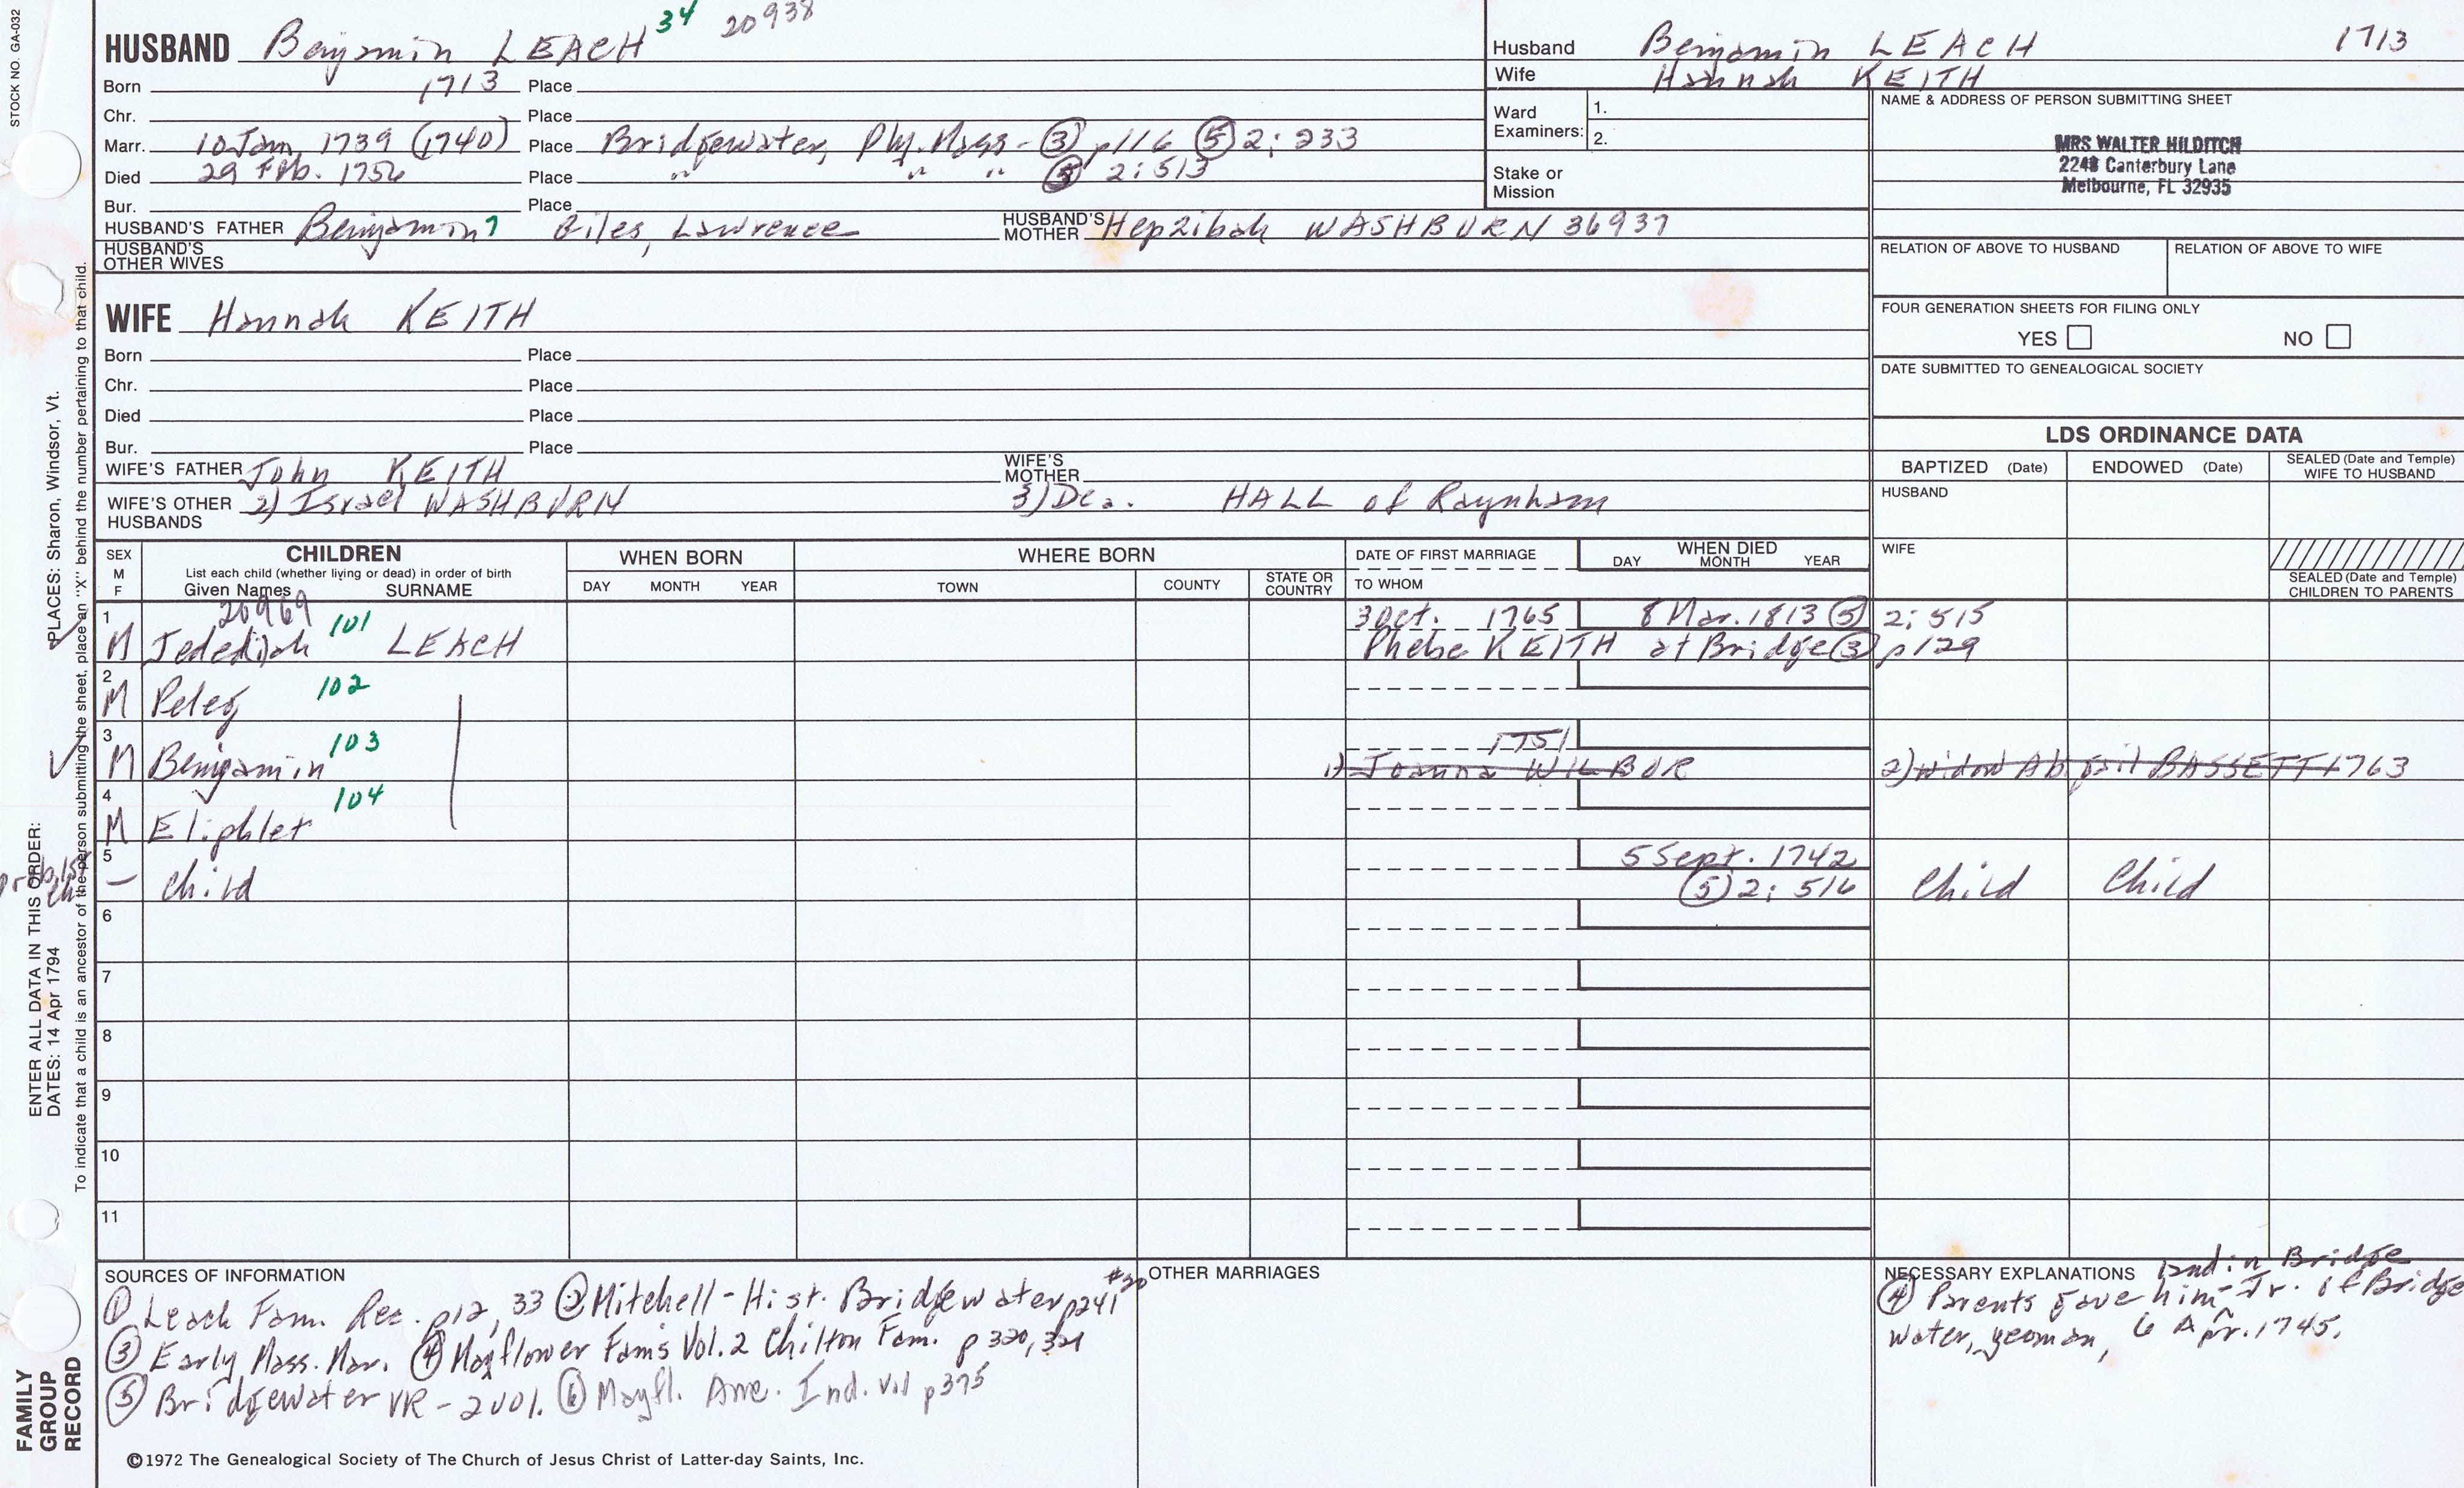 STOCK NO. GA-032
HUSBAND Benjamin LEACH 34 20938
Born 1713 Place
Chr. Place
Marr. 10 Jan. 1739 (1740) Place Bridgewater, Ply. Mass - ③ p116 ⑤ 2: 233
Died 29 Feb. 1756 Place " " " ⑤ 2: 513
Bur. Place
HUSBAND'S FATHER Benjamin 7 Giles, Lawrence HUSBAND'S MOTHER Hepzibah WASHBURN 36937
HUSBAND'S OTHER WIVES
WIFE Hannah KEITH
Born Place
Chr. Place
Died Place
Bur. Place
WIFE'S FATHER John KEITH WIFE'S MOTHER
WIFE'S OTHER HUSBANDS 2) Israel WASHBURN 3) Dea. HALL of Raynham
Husband Benjamin LEACH 1713
Wife Hannah KEITH
Ward Examiners: 1.
2.
Stake or Mission
NAME & ADDRESS OF PERSON SUBMITTING SHEET
MRS WALTER HILDITCH
2248 Canterbury Lane
Melbourne, FL 32935
RELATION OF ABOVE TO HUSBAND RELATION OF ABOVE TO WIFE
FOUR GENERATION SHEETS FOR FILING ONLY
YES NO
DATE SUBMITTED TO GENEALOGICAL SOCIETY
LDS ORDINANCE DATA
BAPTIZED (Date) ENDOWED (Date) SEALED (Date and Temple) WIFE TO HUSBAND
HUSBAND
WIFE
SEALED (Date and Temple) CHILDREN TO PARENTS
SEX M F CHILDREN WHEN BORN WHERE BORN DATE OF FIRST MARRIAGE WHEN DIED
List each child (whether living or dead) in order of birth
Given Names SURNAME DAY MONTH YEAR TOWN COUNTY STATE OR COUNTRY TO WHOM DAY MONTH YEAR
20969
1 3 Oct. 1765 8 Mar. 1813 ⑤ 2: 515
M Jedediah 101 LEACH Phebe KEITH at Bridge ③ p129
2
M Peleg 102
3 1751
M Benjamin 103 1) Joanna WILBUR 2) widow Abigail BASSETT 1763
4
M Eliphlet 104
5 5 Sept. 1742
— child ⑤ 2: 516 Child Child
6
7
8
9
10
11
SOURCES OF INFORMATION
① Leach Fam. Rec. p12, 33 ② Mitchell - Hist. Bridgewater p241 #20
③ Early Mass. Mar. ④ Mayflower Fam's Vol. 2 Chilton Fam. p 320, 321
⑤ Bridgewater VR - 2 vol. ⑥ Mayfl. Anc. Ind. p375
OTHER MARRIAGES
NECESSARY EXPLANATIONS land in Bridge
④ Parents gave him - Jr. of Bridge
water, yeoman, 6 Apr. 1745.
©1972 The Genealogical Society of The Church of Jesus Christ of Latter-day Saints, Inc.
PLACES: Sharon, Windsor, Vt.
ENTER ALL DATA IN THIS ORDER:
DATES: 14 Apr 1794
To indicate that a child is an ancestor of the person submitting the sheet, place an "X" behind the number pertaining to that child.
prob. 1st ch
FAMILY
GROUP
RECORD